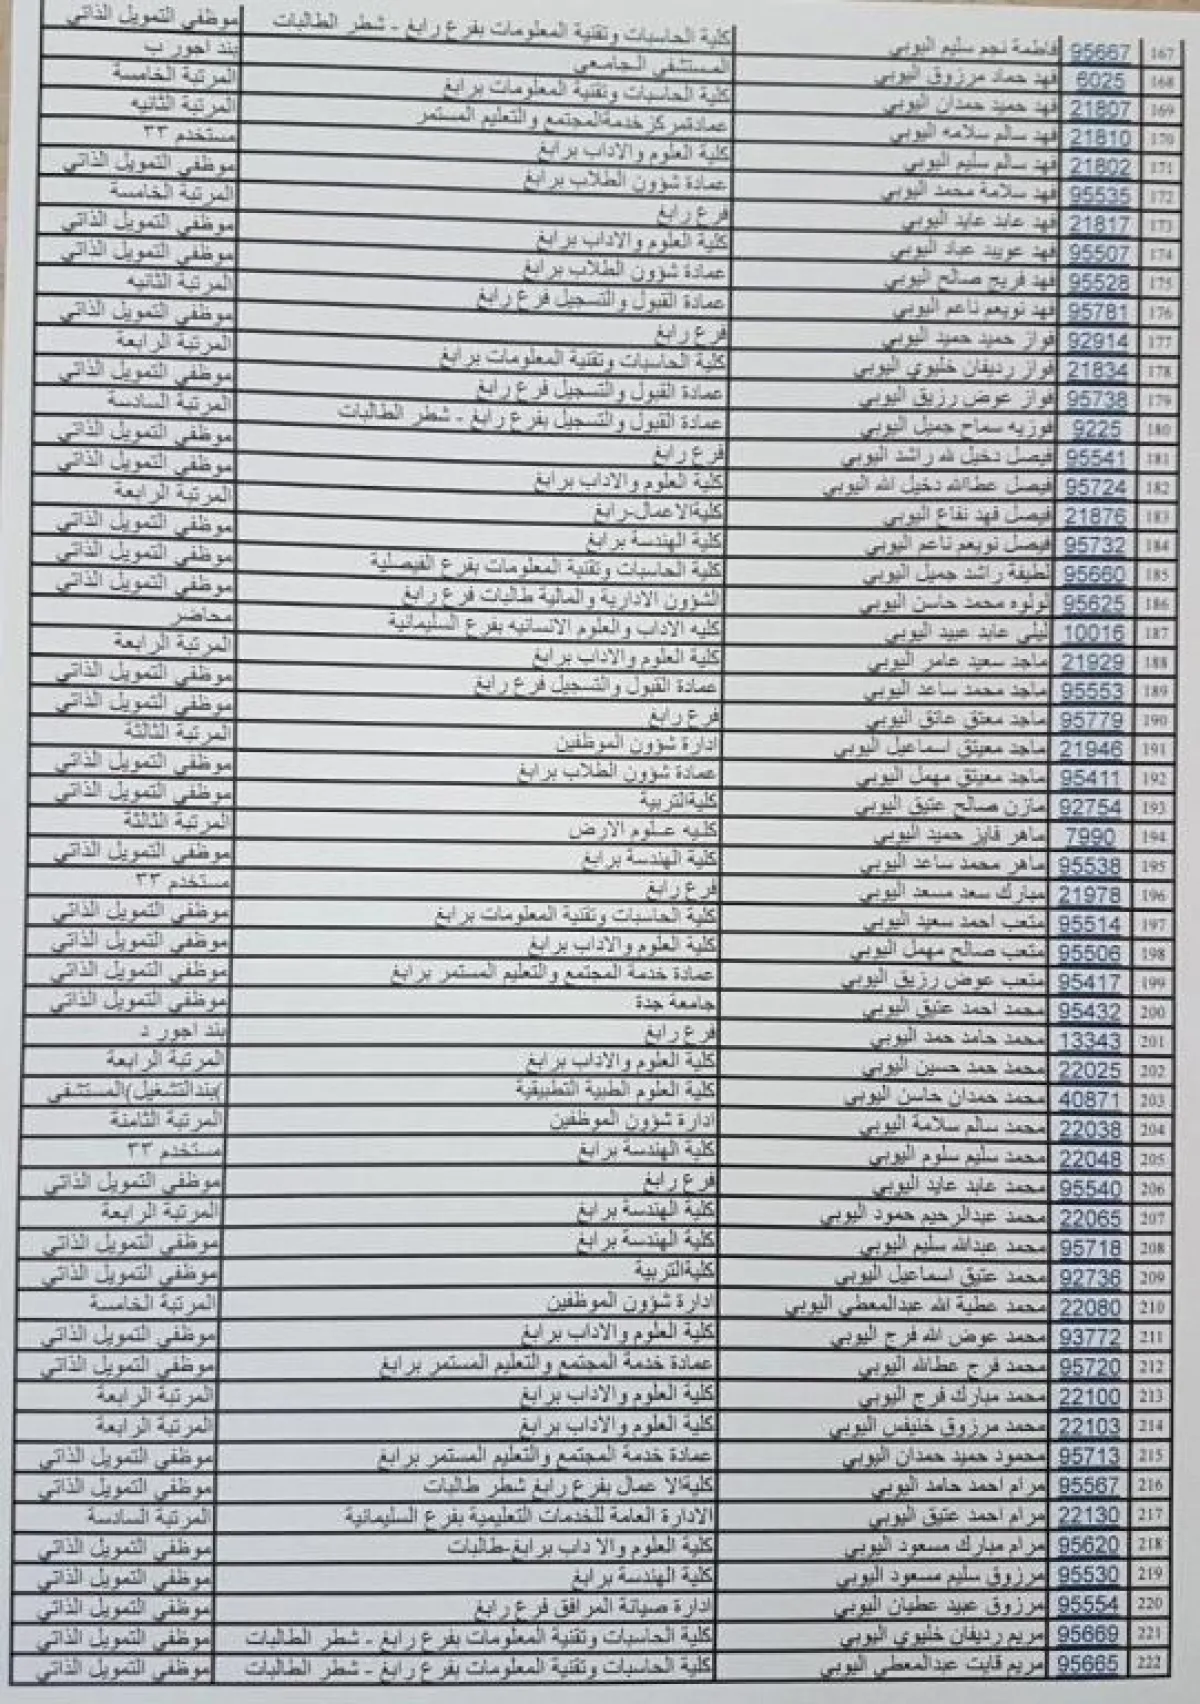 167 95667 فاطمة نجم سليم اليوبي كلية الحاسبات وتقنية المعلومات بفرع رابغ - شطر الطالبات موظفي التمويل الذاتي
168 6025 فهد حماد مرزوق اليوبي المستشفى الجامعي بند اجور ب
169 21807 فهد حميد حمدان اليوبي كلية الحاسبات وتقنية المعلومات برابغ المرتبة الخامسة
170 21810 فهد سالم سلامه اليوبي عمادةمركز خدمةالمجتمع والتعليم المستمر المرتبة الثانيه
171 21802 فهد سالم سليم اليوبي كلية العلوم والاداب برابغ مستخدم ٣٣
172 95535 فهد سلامة محمد اليوبي عمادة شؤون الطلاب برابغ موظفي التمويل الذاتي
173 21817 فهد عابد عايد اليوبي فرع رابغ المرتبة الخامسة
174 95507 فهد عوييد عباد اليوبي كلية العلوم والاداب برابغ موظفي التمويل الذاتي
175 95528 فهد فريج صالح اليوبي عمادة شؤون الطلاب برابغ موظفي التمويل الذاتي
176 95781 فهد نويعم ناعم اليوبي عمادة القبول والتسجيل فرع رابغ المرتبة الثانيه
177 92914 فواز حميد حميد اليوبي فرع رابغ موظفي التمويل الذاتي
178 21834 فواز رديفان خليوي اليوبي كلية الحاسبات وتقنية المعلومات برابغ المرتبة الرابعة
179 95738 فواز عوض رزيق اليوبي عمادة القبول والتسجيل فرع رابغ موظفي التمويل الذاتي
180 9225 فوزيه سماح جميل اليوبي عمادة القبول والتسجيل بفرع رابغ - شطر الطالبات المرتبة السادسة
181 95541 فيصل دخيل لله راشد اليوبي فرع رابغ موظفي التمويل الذاتي
182 95724 فيصل عطاالله دخيل الله اليوبي كلية العلوم والاداب برابغ موظفي التمويل الذاتي
183 21876 فيصل فهد نفاع اليوبي كليةالاعمال-رابغ المرتبة الرابعة
184 95732 فيصل نويعم ناعم اليوبي كلية الهندسة برابغ موظفي التمويل الذاتي
185 95660 لطيفة راشد جميل اليوبي كلية الحاسبات وتقنية المعلومات بفرع الفيصلية موظفي التمويل الذاتي
186 95625 لولوه محمد حاسن اليوبي الشؤون الادارية والمالية طالبات فرع رابغ موظفي التمويل الذاتي
187 10016 ليلى عابد عبيد اليوبي كليه الاداب والعلوم الانسانيه بفرع السليمانية محاضر
188 21929 ماجد سعيد عامر اليوبي كلية العلوم والاداب برابغ المرتبة الرابعة
189 95553 ماجد محمد ساعد اليوبي عمادة القبول والتسجيل فرع رابغ موظفي التمويل الذاتي
190 95779 ماجد معتق عاتق اليوبي فرع رابغ موظفي التمويل الذاتي
191 21946 ماجد معيتق اسماعيل اليوبي ادارة شؤون الموظفين المرتبة الثالثة
192 95411 ماجد معيتق مهمل اليوبي عمادة شؤون الطلاب برابغ موظفي التمويل الذاتي
193 92754 مازن صالح عتيق اليوبي كليةالتربية موظفي التمويل الذاتي
194 7990 ماهر فايز حميد اليوبي كليه علوم الارض المرتبة الثالثة
195 95538 ماهر محمد ساعد اليوبي كلية الهندسة برابغ موظفي التمويل الذاتي
196 21978 مبارك سعد مسعد اليوبي فرع رابغ مستخدم ٣٣
197 95514 متعب احمد سعيد اليوبي كلية الحاسبات وتقنية المعلومات برابغ موظفي التمويل الذاتي
198 95506 متعب صالح مهمل اليوبي كلية العلوم والاداب برابغ موظفي التمويل الذاتي
199 95417 متعب عوض رزيق اليوبي عمادة خدمة المجتمع والتعليم المستمر برابغ موظفي التمويل الذاتي
200 95432 محمد احمد عتيق اليوبي جامعة جدة موظفي التمويل الذاتي
201 13343 محمد حامد حمد اليوبي فرع رابغ بند اجور د
202 22025 محمد حمد حسين اليوبي كلية العلوم والاداب برابغ المرتبة الرابعة
203 40871 محمد حمدان حاسن اليوبي كلية العلوم الطبية التطبيقية (بندالتشغيل)المستشفى
204 22038 محمد سالم سلامة اليوبي ادارة شؤون الموظفين المرتبة الثامنة
205 22048 محمد سليم سلوم اليوبي كلية الهندسة برابغ مستخدم ٣٣
206 95540 محمد عابد عايد اليوبي فرع رابغ موظفي التمويل الذاتي
207 22065 محمد عبدالرحيم حمود اليوبي كلية الهندسة برابغ المرتبة الرابعة
208 95718 محمد عبدالله سليم اليوبي كلية الهندسة برابغ موظفي التمويل الذاتي
209 92736 محمد عتيق اسماعيل اليوبي كليةالتربية موظفي التمويل الذاتي
210 22080 محمد عطية الله عبدالمعطي اليوبي ادارة شؤون الموظفين المرتبة الخامسة
211 93772 محمد عوض الله فرج اليوبي كلية العلوم والاداب برابغ موظفي التمويل الذاتي
212 95720 محمد فرج عطاالله اليوبي عمادة خدمة المجتمع والتعليم المستمر برابغ موظفي التمويل الذاتي
213 22100 محمد مبارك فرج اليوبي كلية العلوم والاداب برابغ المرتبة الرابعة
214 22103 محمد مرزوق خنيفس اليوبي كلية العلوم والاداب برابغ المرتبة الرابعة
215 95713 محمود حميد حمدان اليوبي عمادة خدمة المجتمع والتعليم المستمر برابغ موظفي التمويل الذاتي
216 95567 مرام احمد حامد اليوبي كليةالا عمال بفرع رابغ شطر طالبات موظفي التمويل الذاتي
217 22130 مرام احمد عتيق اليوبي الادارة العامة للخدمات التعليمية بفرع السليمانية المرتبة السادسة
218 95620 مرام مبارك مسعود اليوبي كلية العلوم والا داب برابغ-طالبات موظفي التمويل الذاتي
219 95530 مرزوق سليم مسعود اليوبي كلية الهندسة برابغ موظفي التمويل الذاتي
220 95554 مرزوق عبيد عطيان اليوبي ادارة صيانة المرافق فرع رابغ موظفي التمويل الذاتي
221 95669 مريم رديفان خليوي اليوبي كلية الحاسبات وتقنية المعلومات بفرع رابغ - شطر الطالبات موظفي التمويل الذاتي
222 95665 مريم قابت عبدالمعطي اليوبي كلية الحاسبات وتقنية المعلومات بفرع رابغ - شطر الطالبات موظفي التمويل الذاتي